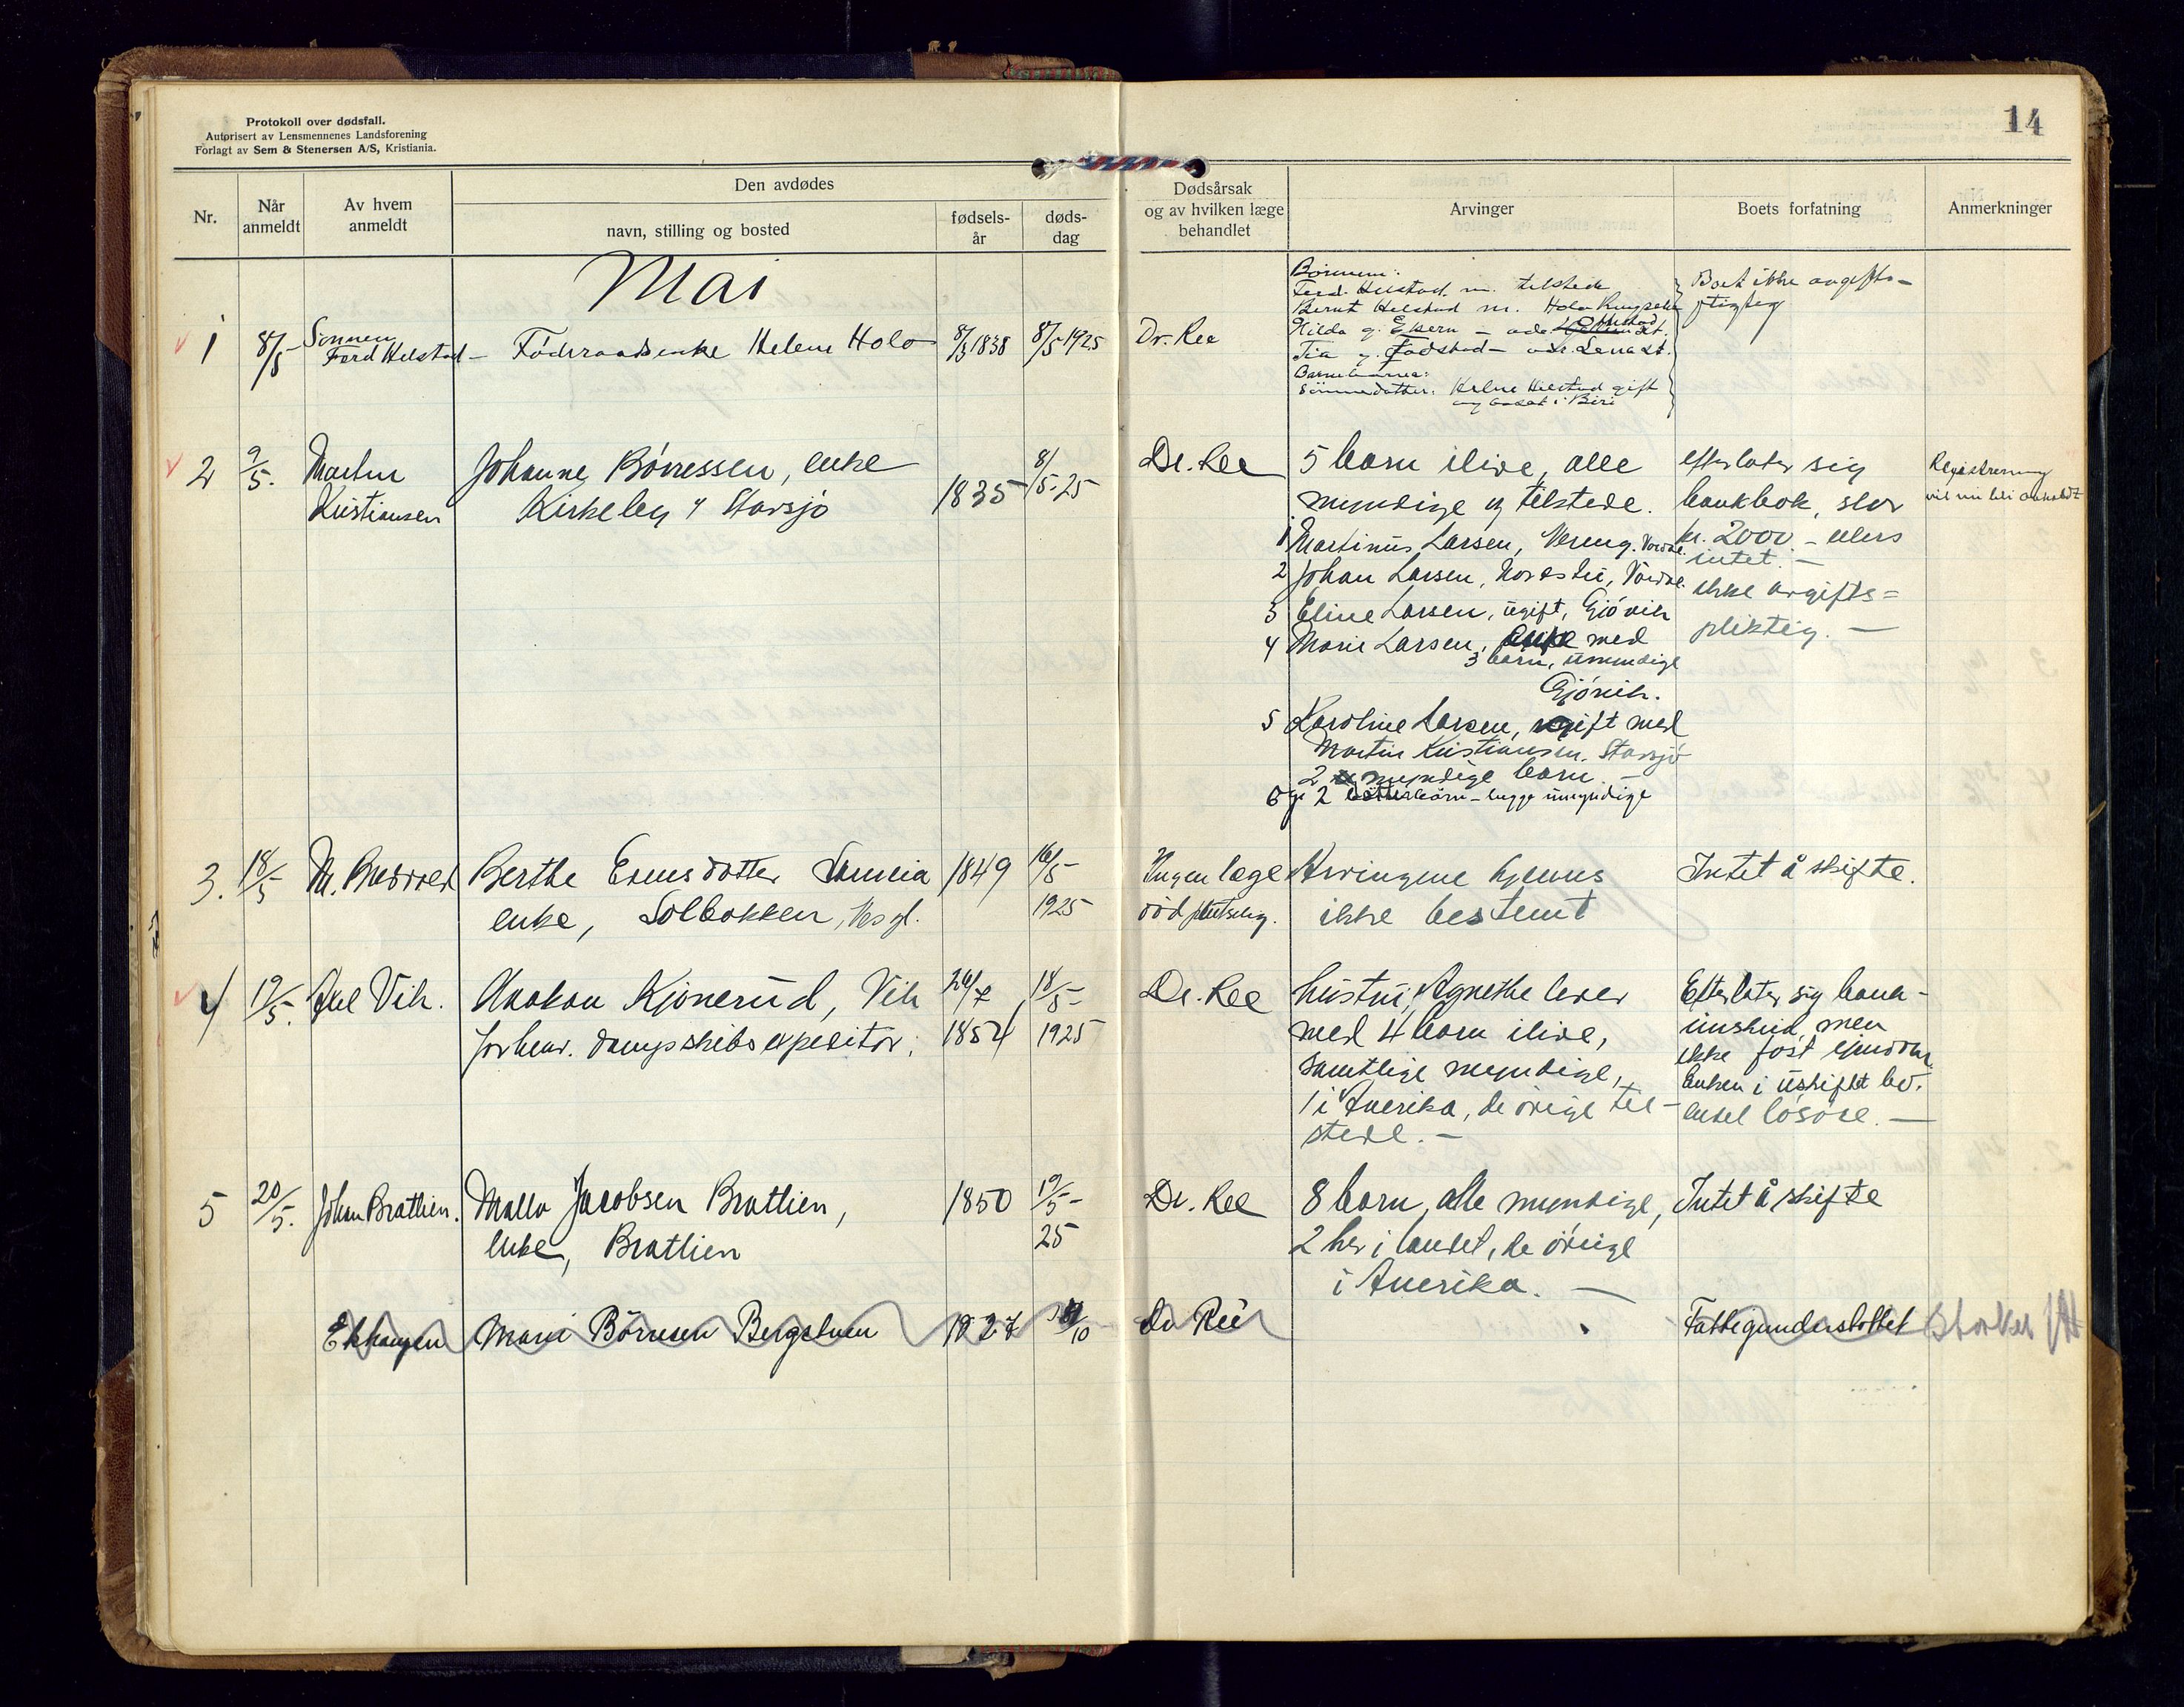 Protokoll over dødsfall.
Autorisert av Lensmennenes Landsforening
Forlagt av Sem & Stenersen A/S, Kristiania.
14
Nr.
Når anmeldt
Av hvem anmeldt
Den avdødes
navn, stilling og bosted
fødsels-år
døds-dag
Dødsårsak og av hvilken læge behandlet
Arvinger
Boets forfatning
Anmerkninger
Mai
1 8/5 Sønnen Ferd Helstad – Føderaadsenke Helene Holo 8/3 1838 8/5 1925
Dr. Ree
Børnene:
Ferd. Helstad. m. tilstede
Bernt Helstad m. Holo
Hilda g. Ekern – adr.
Tia g. Fodstad – adr. Lena st.
Barnebarnea:
Sönnedatter: Helene Helstad gift
og bosat i Biri
Boet ikke avgifts-
pligtig
2 9/5. Martin Kristiansen
Johanne Börressen, enke
Kirkeby / Starsjø
1835
8/5-25
Dr. Ree
5 barn ilive, alle
myndige og tilstede.
1 Martinus Larsen, Vereng. Vardal.
2 Johan Larsen, Vardal.
3 Eline Larsen, ugift, Gjövik
4 Marie Larsen, enke med
3 barn, umyndige
Gjövik.
5 Karoline Larsen, gift med
Martin Kristiansen. Starsjö
2 myndige barn. –
6 2 datterbörn – begge umyndige
efterlater sig
bankbok, stor
kr. 2000 – ellers
intet. –
ikke avgifts=
pliktig. –
Registrering
vil bli avholdt
3. 18/5 M. Bredvold
Berthe Evensdatter
enke, Solbakken,
1849
16/5-
1925
Ingen læge
død pludselig.
Arvingene hjemme
ikke bestemt
Intet å skifte.
4 19/5. Axel Vik.
Haakon Kjönerud, Vik
forhenv. dampskibsexpeditör.
26/7
1854
18/5-
1925
Dr. Ree
hustru, Agnethe lever
med 4 barn ilive,
samtlige myndige,
1 i Amerika, de övrige til-
stede. –
Efterlater sig bank-
inskud, men
ikke fast eiendom
Enken i uskiftet bo.
enkel lösöre. –
5 20/5. Johan Bratlien.
Malla Jacobsen Bratlien,
enke, Bratlien
1850
19/5-
25
Dr. Ree
8 barn, alle myndige,
2 her i landet, de övrige
i Amerika. –
Intet å skifte
Ekhaugen Marie Börresen Bergstuen
Dr Ree
Fattigunderstøttet
Strøket